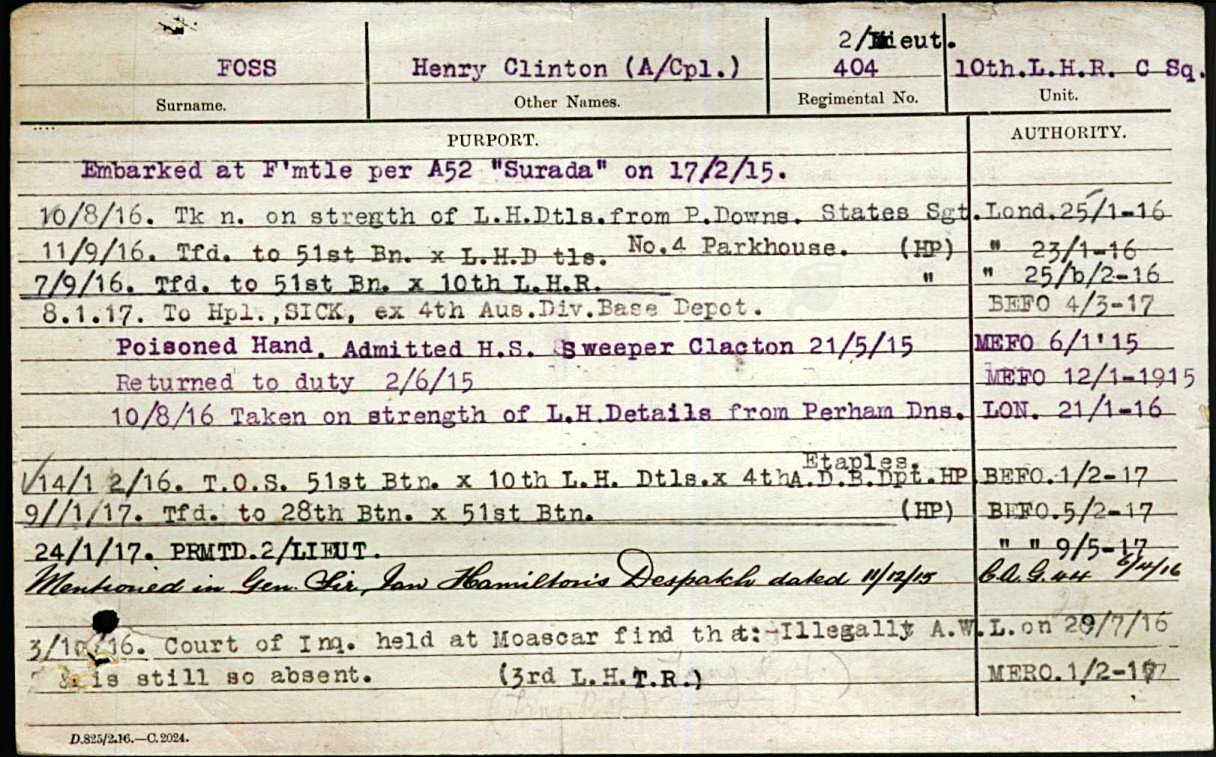 2/Lieut.
FOSS Henry Clinton (A/Cpl.) 404 10th.L.H.R. C Sq.
Surname. Other Names. Regimental No. Unit.
PURPORT. AUTHORITY.
Embarked at F'mtle per A52 "Surada" on 17/2/15.
10/8/16. Tk n. on stregth of L.H.Dtls.from P.Downs. States Sgt. Lond.25/1-16
11/9/16. Tfd. to 51st Bn. x L.H.D tls. No.4 Parkhouse. (HP) " 23/1-16
7/9/16. Tfd. to 51st Bn. x 10th L.H.R. " " 25/b/2-16
8.1.17. To Hpl.,SICK, ex 4th Aus.Div.Base Depot. BEFO 4/3-17
Poisoned Hand. Admitted H.S. Sweeper Clacton 21/5/15 MEFO 6/1'15
Returned to duty 2/6/15 MEFO 12/1-1915
10/8/16 Taken on strength of L.H.Details from Perham Dns. LON. 21/1-16
Etaples.
14/1 2/16. T.O.S. 51st Btn. x 10th L.H. Dtls.x 4thA.D.B.Dpt.HP BEFO.1/2-17
9/1/17. Tfd. to 28th Btn. x 51st Btn. (HP) BEFO.5/2-17
24/1/17. PRMTD.2/LIEUT. " " 9/5-17
Mentioned in Gen. Sir, Ian Hamilton's Despatch dated 11/12/15 C.A.G. 44 /4/16
3/10/16. Court of Inq. held at Moascar find that:-Illegally A.W.L.on 29/7/16
& is still so absent. (3rd L.H.T.R.) MERO.1/2-17
D.825/2.16.—C.2024.